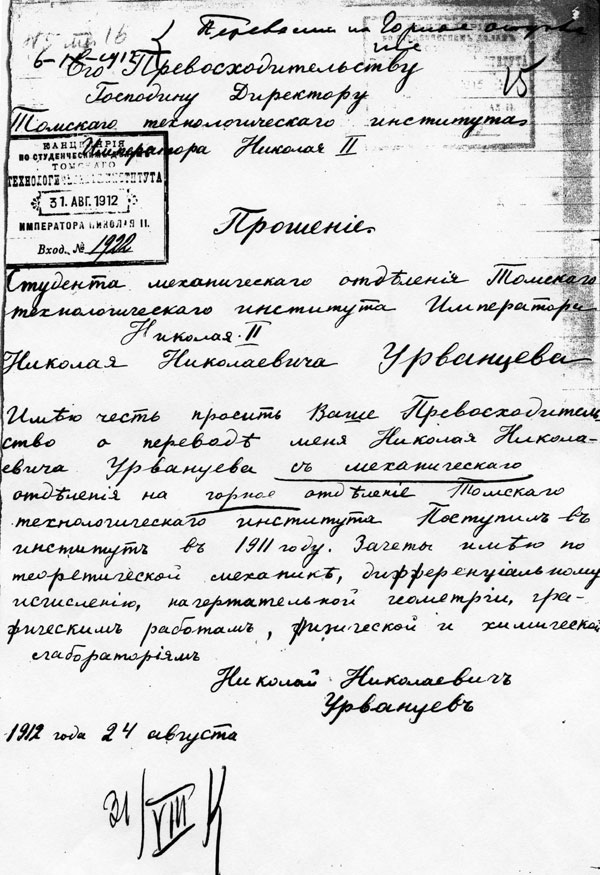 6-IX-1912
Его Превосходительству
Господину Директору
Томскаго технологическаго института
Императора Николая II
КАНЦЕЛЯРІЯ
ПО СТУДЕНЧЕСКИМ
ТОМСКАГО
ТЕХНОЛОГИЧЕСКАГО ИНСТИТУТА
31. АВГ. 1912
ИМПЕРАТОРА НИКОЛАЯ II.
Вход. № 1922
15
Прошеніе
Студента механическаго отдѣленія Томскаго
технологическаго института Императора
Николая II
Николая Николаевича Урванцева
Имѣю честь просить Ваше Превосходитель
ство о переводѣ меня Николая Никола-
евича Урванцева съ механическаго
отдѣленія на горное отдѣленіе Томскаго
технологическаго института Поступилъ въ
институтъ въ 1911 году. Зачеты имѣю по
теоретической механикѣ, дифференціальному
исчисленію, начертательной геометріи, гра-
фическимъ работамъ, физической и химической
лабораторіямъ
Николай Николаевичъ
Урванцевъ
1912 года 24 августа
31/VIII